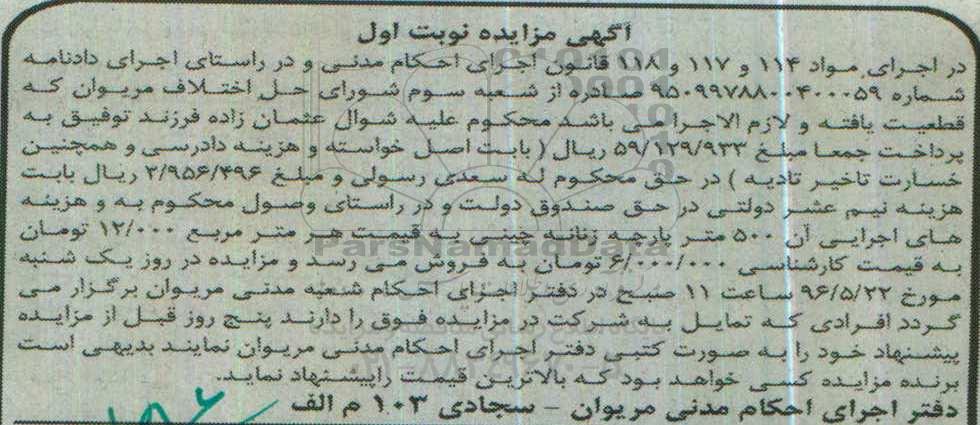 آگهی مزایده نوبت اول
در اجرای مواد ۱۱۴ و ۱۱۷ و ۱۱۸ قانون اجرای احکام مدنی و در راستای اجرای دادنامه
شماره ۹۵۰۹۹۷۸۸۰۰۴۰۰۰۵۹ صادره از شعبه سوم شورای حل اختلاف مریوان که
قطعیت یافته و لازم الاجرا می باشد محکوم علیه شوال عثمان زاده فرزند توفیق به
پرداخت جمعا مبلغ ۵۹/۱۲۹/۹۳۳ ریال ( بابت اصل خواسته و هزینه دادرسی و همچنین
خسارت تاخیر تادیه ) در حق محکوم له سعدی رسولی و مبلغ ۲/۹۵۶/۴۹۶ ریال بابت
هزینه نیم عشر دولتی در حق صندوق دولت و در راستای وصول محکوم به و هزینه
های اجرایی آن ۵۰۰ متر پارچه زنانه چینی به قیمت هر متر مربع ۱۲/۰۰۰ تومان
به قیمت کارشناسی ۶/۰۰۰/۰۰۰ تومان به فروش می رسد و مزایده در روز یک شنبه
مورخ ۹۶/۵/۲۲ ساعت ۱۱ صبح در دفتر اجرای احکام شعبه مدنی مریوان برگزار می
گردد افرادی که تمایل به شرکت در مزایده فوق را دارند پنج روز قبل از مزایده
پیشنهاد خود را به صورت کتبی دفتر اجرای احکام مدنی مریوان نمایند بدیهی است
برنده مزایده کسی خواهد بود که بالاترین قیمت راپیشنهاد نماید.
دفتر اجرای احکام مدنی مریوان - سجادی ۱۰۳ م الف
ParsNamadData